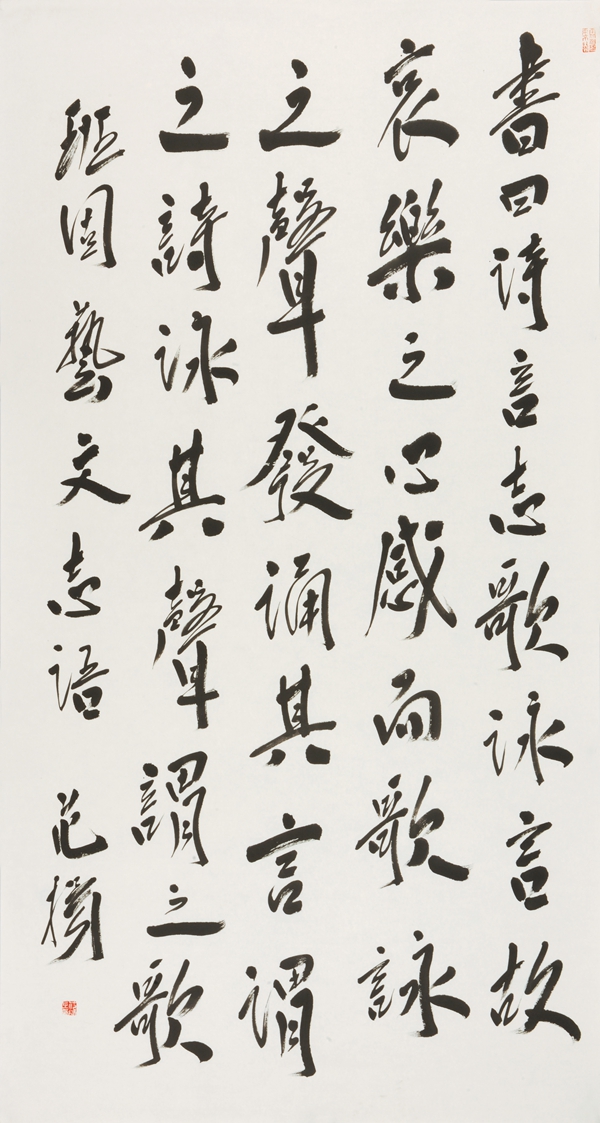 書曰詩言志歌詠言故
哀樂之心感而歌詠
之聲發誦其言謂
之詩詠其聲謂之歌
班固藝文志語 范